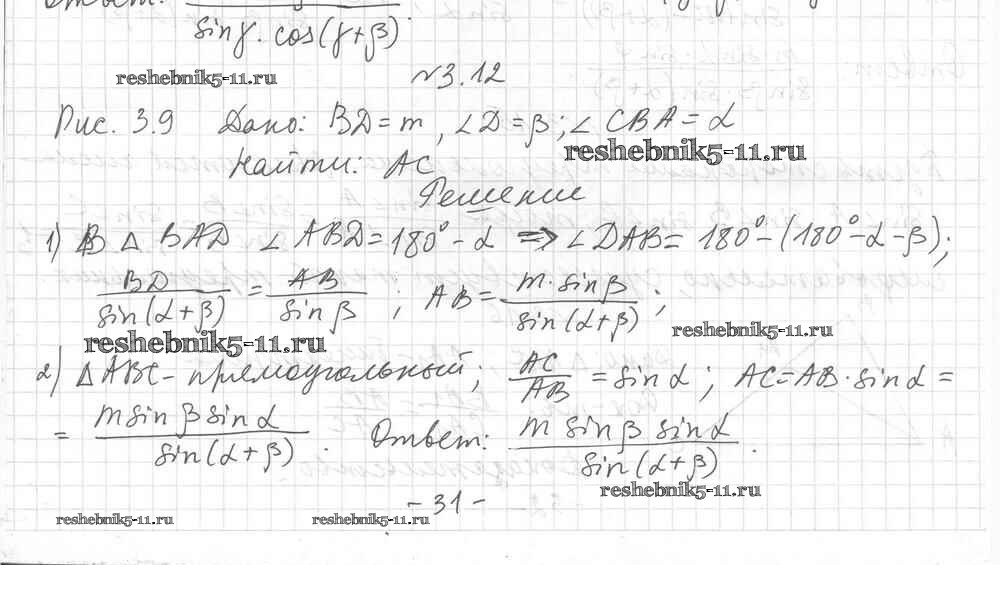 sinγ · cos(γ+β).
reshebnik5-11.ru
№3.12
Рис. 3.9 Дано: BD=m, ∠D=β; ∠CBA=α
reshebnik5-11.ru
Найти: AC
Решение
1) В △ BAD ∠ABD=180°-α => ∠DAB= 180°-(180°-α-β);
BD/sin(α+β) = AB/sinβ ; AB= m·sinβ/sin(α+β) ;
reshebnik5-11.ru
reshebnik5-11.ru
2) △ABC - прямоугольный; AC/AB = sinα; AC=AB·sinα =
= m sinβ sinα/sin(α+β) . Ответ: m sinβ sinα/sin(α+β) .
reshebnik5-11.ru
- 31 -
reshebnik5-11.ru
reshebnik5-11.ru